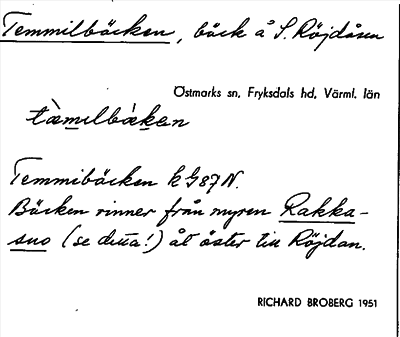 Temmilbäcken, bäck å S. Röjdåsen
Östmarks sn, Fryksdals hd, Värml. län
tæ̀milbæken
Temmibäcken k G87N.
Bäcken rinner från myren Rakka-
suo (se detta!) åt öster till Röjdan.
RICHARD BROBERG 1951